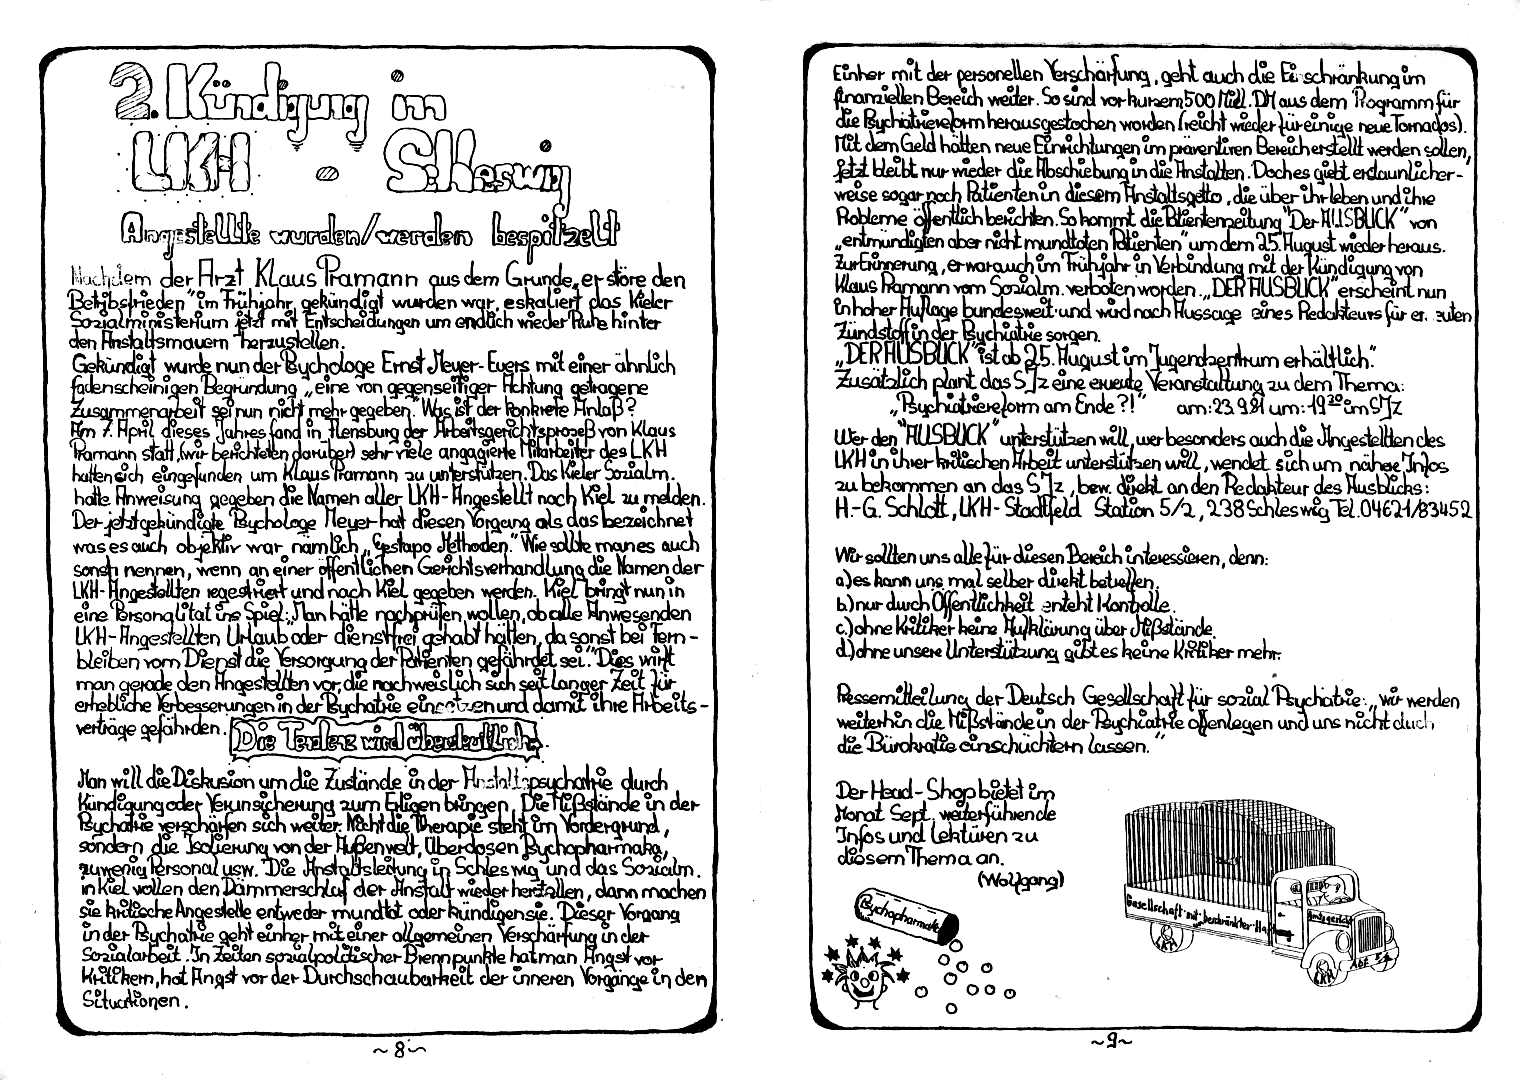 2. Kündigung im
LKH - S.Hleswig
Angestellte wurden/werden bespitzelt
Nachdem der Arzt Klaus Pramann aus dem Grunde, er störe den
Betribsfrieden" im Frühjahr gekündigt wurden war, eskaliert das Kieler
Sozialministerium jetzt mit Entscheidungen um endlich wieder Ruhe hinter
den Anstaltsmauern herzustellen.
Gekündigt wurde nun der Psychologe Ernst Meyer-Evers mit einer ähnlich
fadenscheinigen Begründung „eine von gegenseitiger Achtung getragene
Zusammenarbeit sei nun nicht mehr gegeben." Was ist der konkrete Anlaß?
Am 7. April dieses Jahres fand in Flensburg der Arbeitsgerichtsprozeß von Klaus
Pramann statt, (wir berichteten darüber) sehr viele angagierte Mitarbeiter des LKH
hatten sich eingefunden um Klaus Pramann zu unterstützen. Das Kieler Sozialm.
hatte Anweisung gegeben die Namen aller LKH-Angestellt nach Kiel zu melden.
Der jetzt gekündigte Psychologe Meyer hat diesen Vorgang als das bezeichnet
was es auch objektiv war nämlich „Gestapo Methoden." Wie sollte man es auch
sonst nennen, wenn an einer öffentlichen Gerichtsverhandlung die Namen der
LKH-Angestellten registriert und nach Kiel gegeben werden. Kiel bringt nun in
eine Personalität ins Spiel: „Man hätte nachprüfen wollen, ob alle Anwesenden
LKH-Angestellten Urlaub oder dienstfrei gehabt hätten, da sonst bei Fern-
bleiben vom Dienst die Versorgung der Patienten gefährdet sei." Dies wirft
man gerade den Angestellten vor, die nachweislich sich seit langer Zeit für
erhebliche Verbesserungen in der Psychatrie einsetzen und damit ihre Arbeits-
verträge gefährden. Die Tendenz wird überdeutlich.
Man will die Diskusion um die Zustände in der Anstaltspsychatrie durch
Kündigung oder Verunsicherung zum Erligen bringen. Die Mißstände in der
Psychatrie verschärfen sich weiter. Nicht die Therapie steht im Vordergrund,
sondern die Isolierung von der Außenwelt, Überdosen Psychopharmaka,
zuwenig Personal usw. Die Anstaltsleitung in Schleswig und das Sozialm.
in Kiel wollen den Dämmerschlaf der Anstalt wieder herstallen, dann machen
sie kritische Angestelle entweder mundtot oder kündigen sie. Dieser Vorgang
in der Psychatrie geht einher mit einer allgemeinen Verschärfung in der
Sozialarbeit. In Zeiten sozialpolitischer Brennpunkte hat man Angst vor
Kritikern, hat Angst vor der Durchschaubarkeit der inneren Vorgänge in den
Situationen.
~8~
Einher mit der personellen Verschärfung, geht auch die Ei schränkung im
finanziellen Bereich weiter. So sind vor kurzem 500 Mill. DM aus dem Programm für
die Psychiatriereform herausgestochen worden (reicht wieder für einige neue Tornados).
Mit dem Geld hätten neue Einrichtungen im präventiven Bereich erstellt werden sollen,
jetzt bleibt nur wieder die Abschiebung in die Anstalten. Doch es giebt erstaunlicher-
weise sogar noch Patienten in diesem Anstaltsgetto, die über ihr leben und ihre
Probleme öffentlich berichten. So kommt die Patientenzeitung "Der AUSBLICK" von
„entmündigten aber nicht mundtoten Patienten" um dem 25. August wieder heraus.
Zur Erinnerung, er war auch im Frühjahr in Verbindung mit der Kündigung von
Klaus Pramann vom Sozialm. verboten worden. „DER AUSBLICK" erscheint nun
in hoher Auflage bundesweit und wird nach Aussage eines Redakteurs für er. euten
Zündstoff in der Psychiatrie sorgen.
„DER AUSBLICK" ist ab 25. August im Jugendzentrum erhältlich."
Zusätzlich plant das SJz eine erneute Veranstaltung zu dem Thema:
„Psychiatriereform am Ende?!" am: 23.9.81 um: 19³⁰ im SJz
Wer den "AUSBLICK" unterstützen will, wer besonders auch die Angestellten des
LKH in ihrer kritischen Arbeit unterstützen will, wendet sich um nähere Infos
zu bekommen an das SJz, bzw. direkt an den Redakteur des Ausblicks:
H.-G. Schlott, LKH-Stadtfeld Station 5/2, 238 Schleswig Tel. 04621/83452
Wir sollten uns alle für diesen Bereich interessieren, denn:
a.) es kann uns mal selber direkt betreffen.
b.) nur durch Öffentlichkeit enteht Kontrolle.
c.) ohne Kritiker keine Aufklärung über Mißstände.
d.) ohne unsere Unterstützung gibt es keine Kritiker mehr.
Pressemitteilung der Deutsch Gesellschaft für sozial Psychatrie: „wir werden
weiterhin die Mißstände in der Psychiatrie offenlegen und uns nicht duch
die Bürokratie einschüchtern lassen."
Der Head-Shop bietet im
Monat Sept. weiterführende
Infos und Lektüren zu
diesem Thema an.
(Wolfgang)
Psychopharmaka
Gesellschaft mit beschränkter Haftung
Amtsgericht
LKH
LKH
Abt. 5/4
~9~